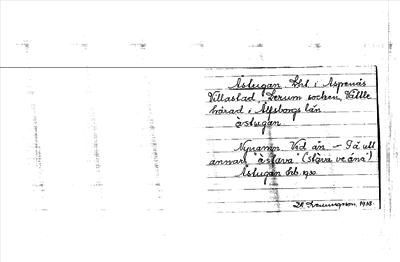 Åstugan Lht i Aspenäs
Villastad Lerum socken, Vättle
härad i Älfsborgs län
åstugan
Nynamn Vid ån - Så ull
annar "åstava" (stava ve åna)
Åstugan hb. 1930
1930.